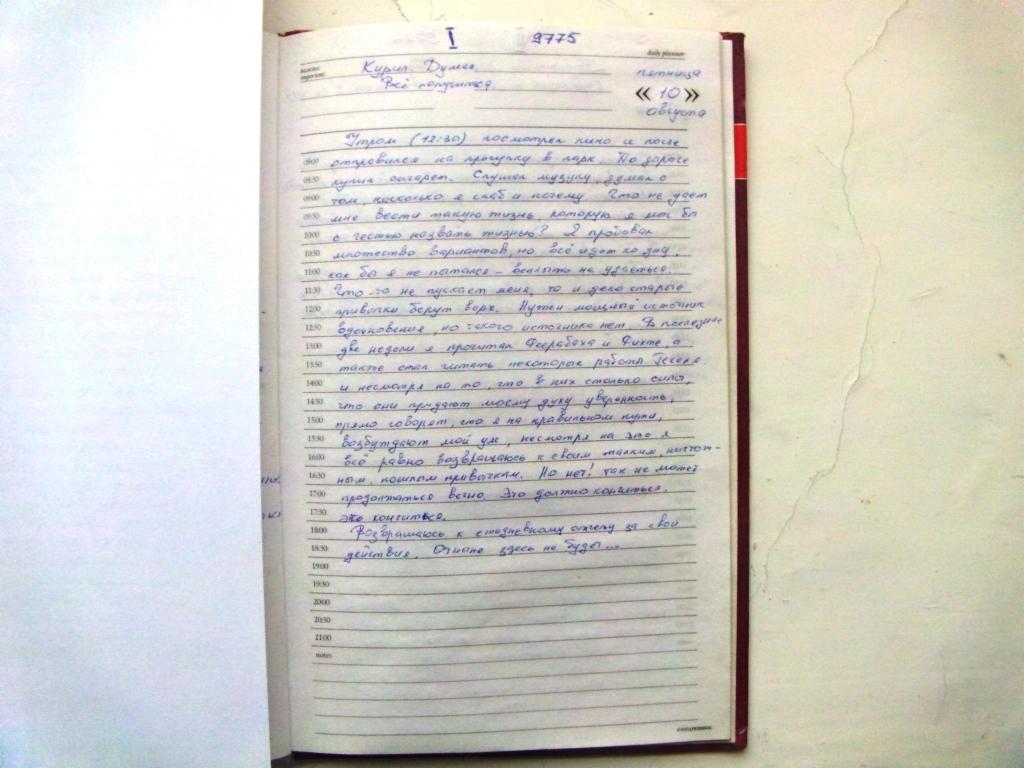 I 2775
daily planner
Курил. Думал.
Всё получится.
пятница
« 10 »
августа
Утром (12:30) посмотрел кино и после
08:00 отправился на прогулку в парк. По дороге
08:30 купил сигарет. Слушал музыку, думал о
09:00 том, насколько я слаб и почему. Что не дает
09:30 мне вести такую жизнь, которую я мог бы
10:00 с честью назвать жизнью? Я пробовал
10:30 множество вариантов, но всё идет ко дну,
11:00 как бы я не пытался - всплыть не удаеться.
11:30 Что-то не пускает меня, то и дело старые
12:00 привычки берут верх. Нужен мощный источник
12:30 вдохновения, но такого источника нет. В последние
13:00 две недели я прочитал Феербаха и Фихте, а
13:30 также стал читать некоторые работы Гегеля.
14:00 и несмотря на то, что в них столько силы,
14:30 что они придают моему духу уверенность,
15:00 прямо говорят, что я на правильном пути,
15:30 возбуждают мой ум, несмотря на это я
16:00 всё равно возвращаюсь к своим мелким,
16:30 ным, пошлым привычкам. Но нет! так не может
17:00 продолжаться вечно. Это должно кончиться.
17:30 это кончиться.
18:00 Возвращаюсь к ежедневному отчету за свои
18:30 действия. Отныне здесь не буде...
19:00
19:30
20:00
20:30
21:00
notes